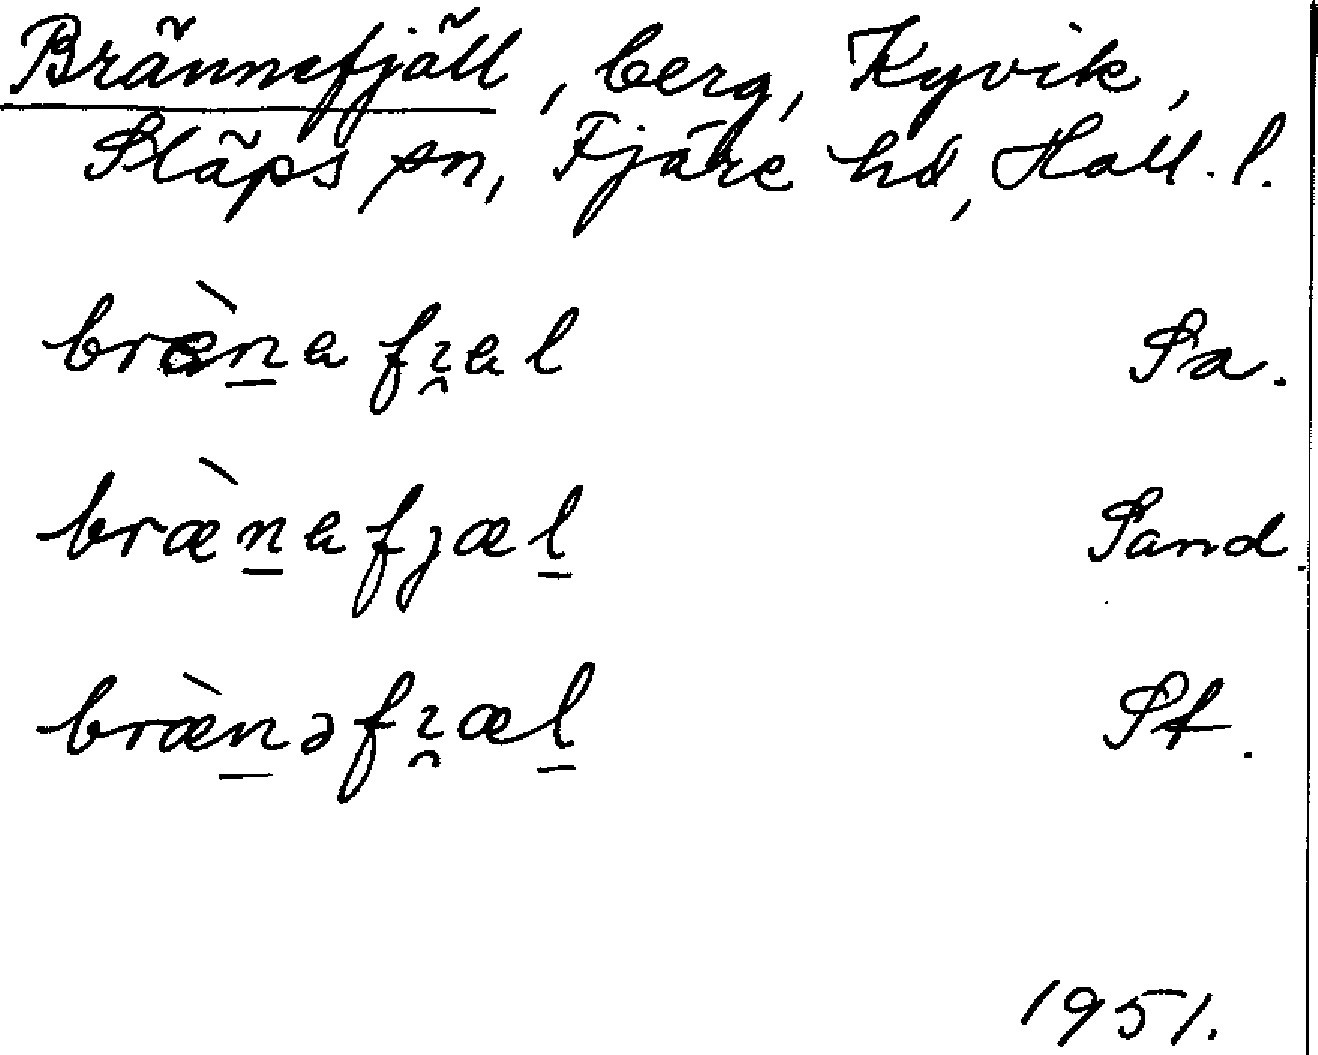 Brännefjäll, berg, Kyvik,
Släps sn, Fjäre hd, Hall. l.
bræ̀n̲afı̯al Sa.
bræ̀n̲afjæl̲ Sand.
bræ̀n̲əfı̯æl̲ St.
1951.